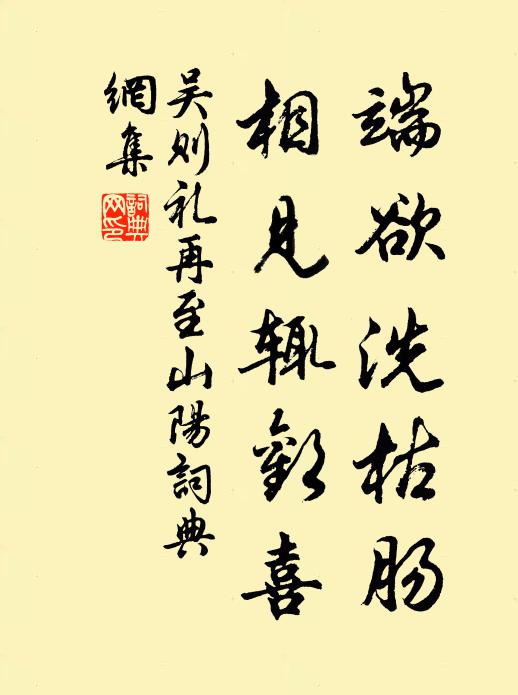 端欲洗枯肠
相见辄欢喜
吴则礼再至山陽詞典
網集
詞典网印